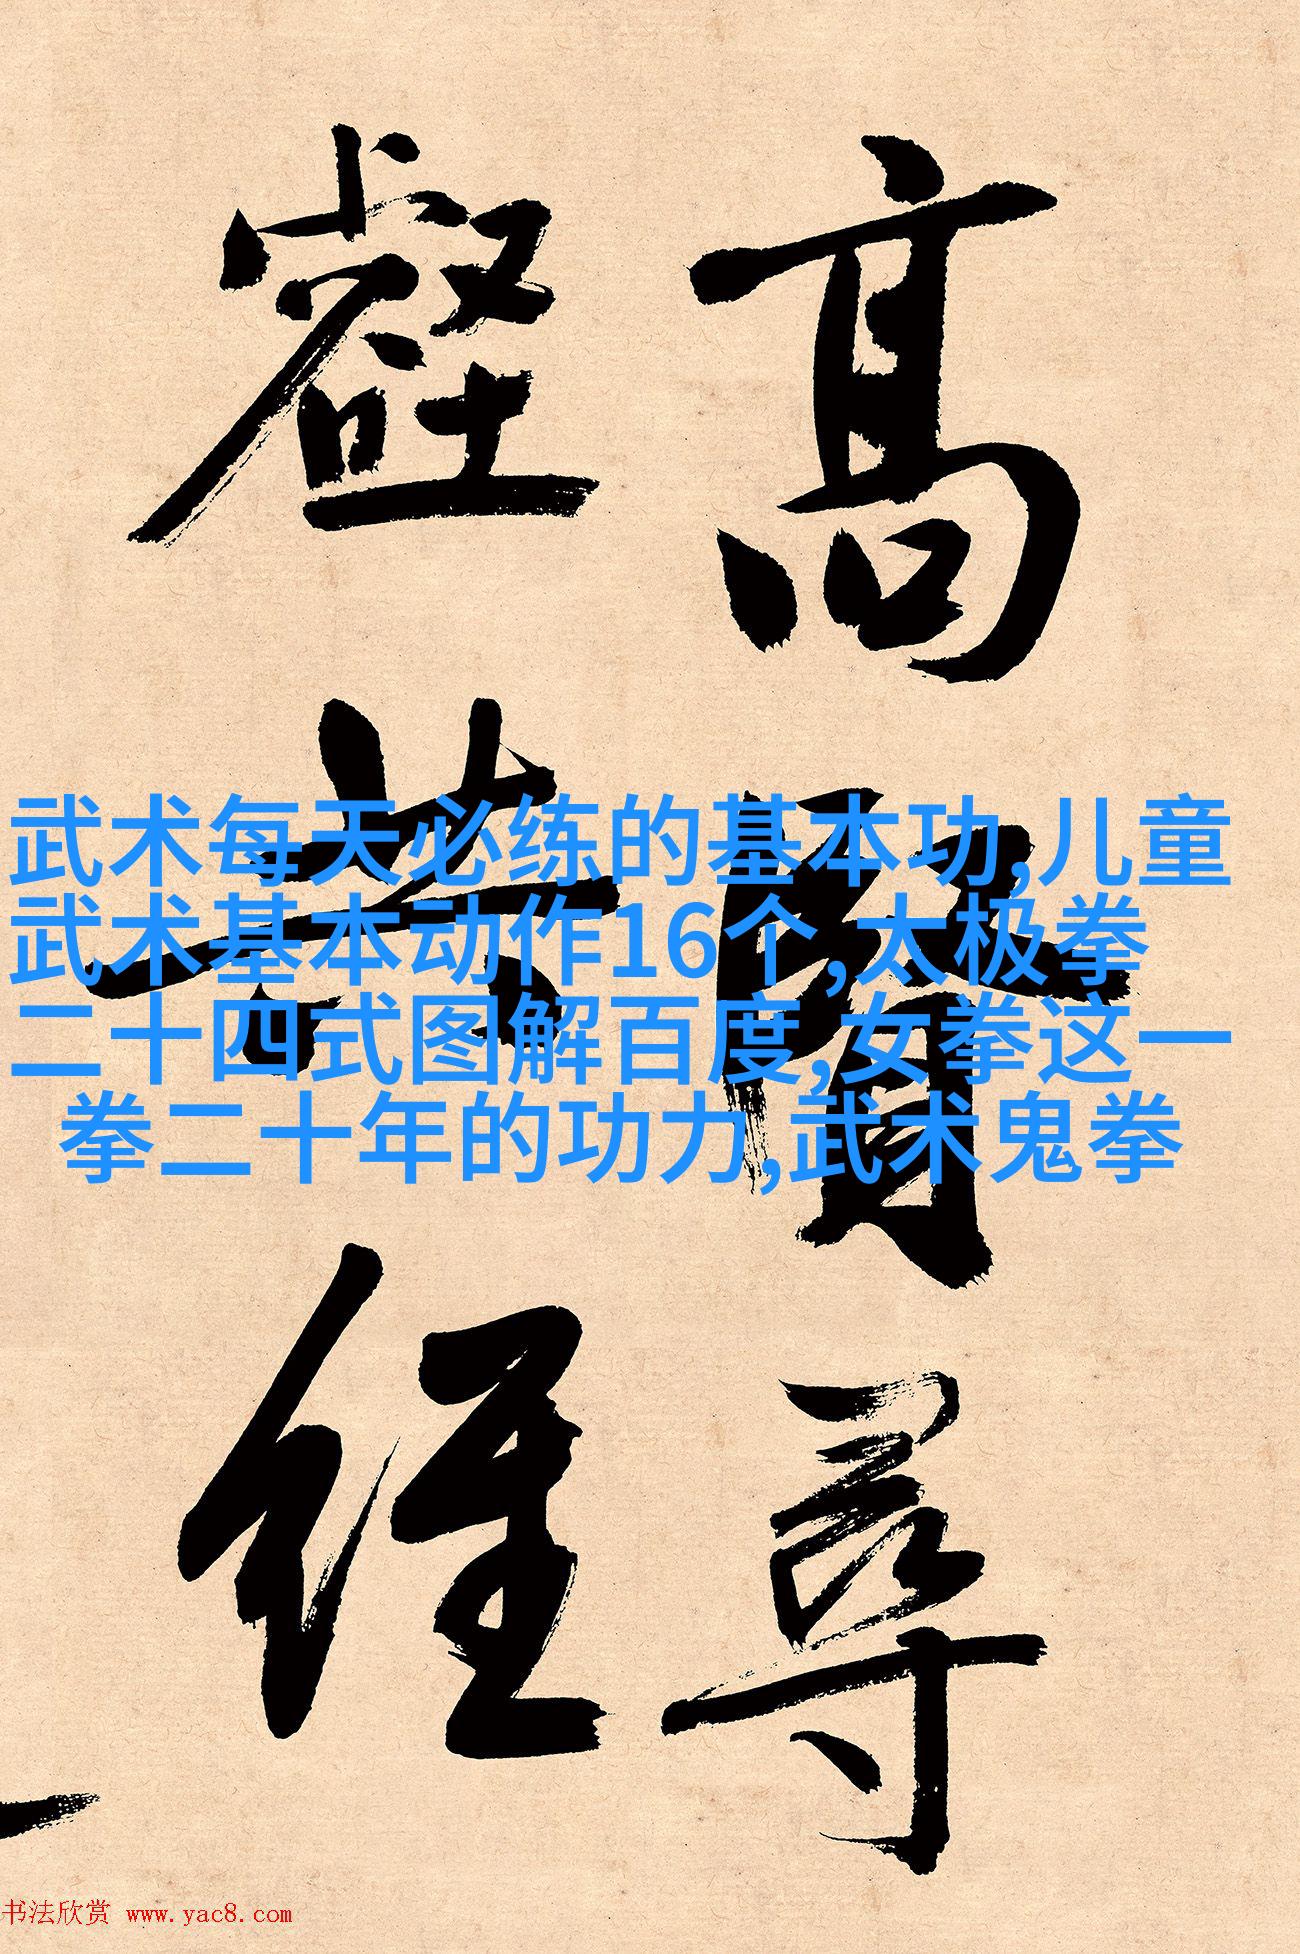 高賢尋
壑共經
武术每天必练的基本功,儿童
武术基本动作16个,太极拳
二十四式图解百度,女拳这一
拳二十年的功力,武术鬼拳
书法欣赏 www.yac8.com